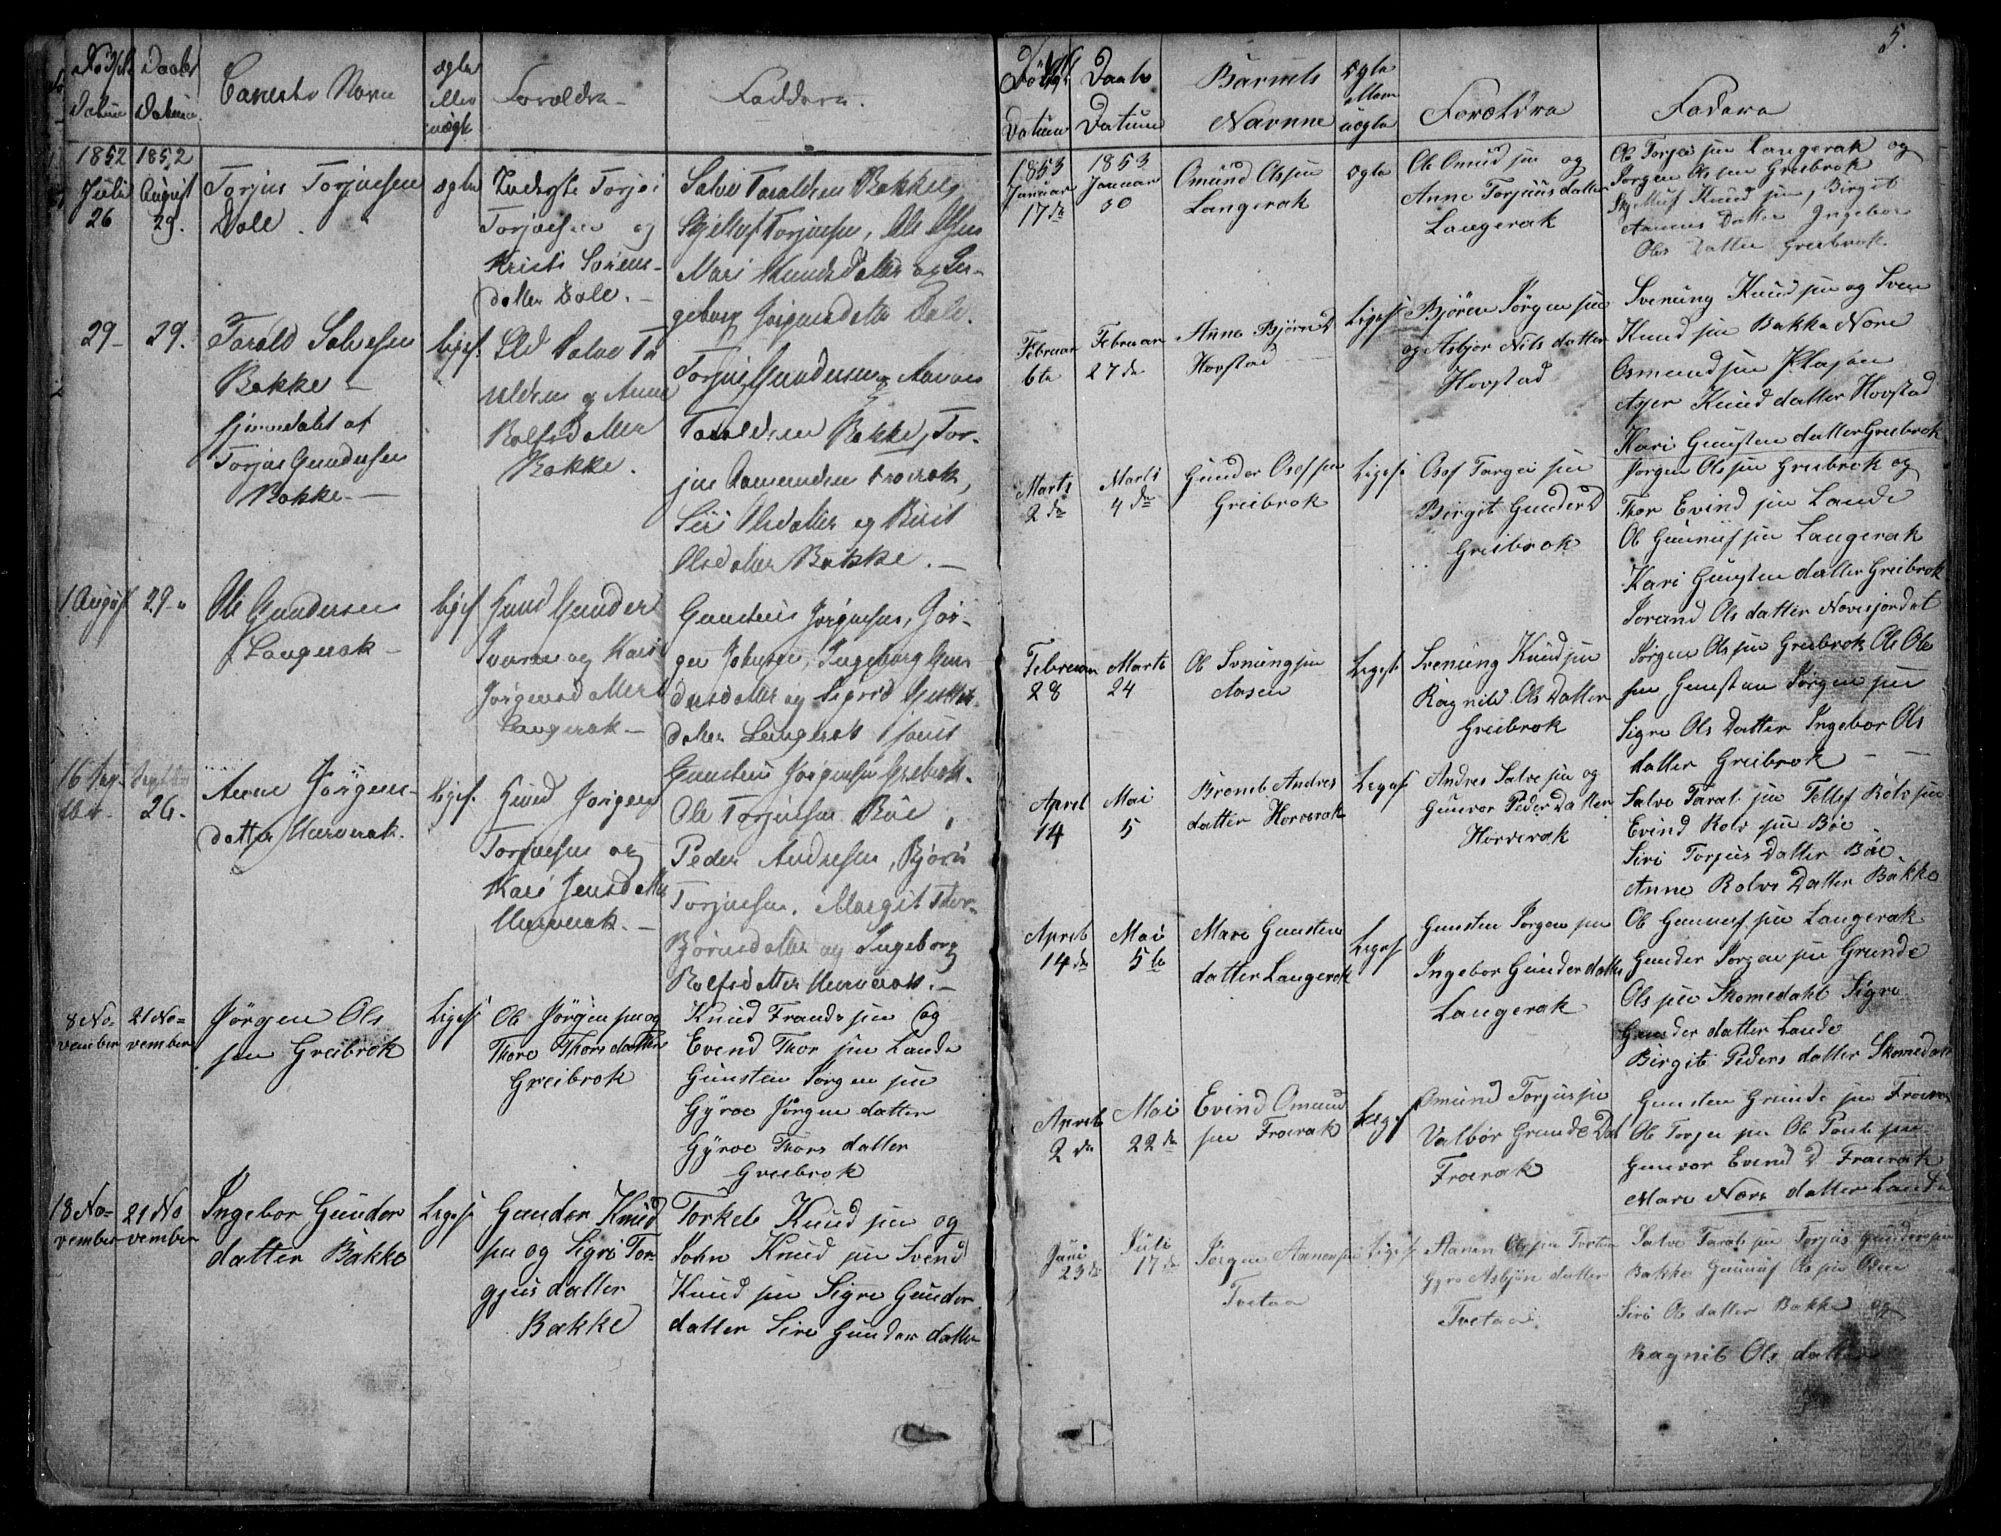 5.
Daabs
Datum
Datum.
Barnets Navn
ægte
eller
uægte
Forældre
Faddere
1852
Juli
26
1852
August
29.
Torjus Torjuesen
Dale.
ægte
Torjuesen og
Kristi Sørens-
datter Dale.
Salve Taraldsen Bakke,
Skjellef Torjuesen, Ole Olsen
Mari Knudsdatter og In-
geborg Jørgensdatter Dale.
29
29.
Tarald Salvesen
Bakke
hjemmedøbt af
Torjus Gundersen
Bakke.
Ligesaa
Salve Ta
raldsen og Anne
Rolfsdatter
Bakke.
Torjus Gundersen og Aanon
Taraldsen Bakke, Tor-
jus Froerak,
Siri Olsdatter og Birit
Olsdatter Bakke.
1 August
29
Ole Gundersen
Langerak
Liges
Gmd Gunder
Iversen og Kari
Jørgensdatter
Langerak
Gunsten Jørgensen, Jør-
gen Johnsen, Ingeborg Gun-
dersdatter og Sigrid
datter Langerak
16 Sep-
tbr.
Septbr
26.
Anne Jørgens-
datter Harverak.
Liges.
Gmd Jørgen
Torjuesen og
Kari Jensdatter
Harverak.
Gunsten Jørgensen Greibrok.
Ole Torjuesen Bøe,
Peder Andresen, Bjørn
Torjuesen, Margit Thor-
Bjørnsdatter og Ingeborg
Rolfsdatter Harverak.
8 No-
vember
21 No-
vember
Jørgen Ols
sen Greibrok
Ligesa
Ole Jørgen sen og
Thore Thorsdatter
Greibrok
Knud Frands sen og
Evend Thor sen Lande
Gunsten Jørgen sen
Gyroe Jørgen datter
Gyroe Thors datter
Greibrok
18 No-
vember
21 No
vember
Ingebor Gunder
datter Bakke
Ligesa
Gunder Knud
sen og Sigri Tor-
gjus datter
Bakke
Torkel Knud sen og
John Knud sen Svend
Knud sen Sigre Gunder
datter Sire Gunder datter
Datum
Daabs
Datum
Barnets
Navnne
ægte
ellem
uægte
Forældra
Fadera
1853
Januar
17de
1853
Januar
30
Omund Olssen
Langerak
ægte
Ole Omund sen og
Anne Torjuusdatter
Langerak
Ole Torjus sen Langerak og
Jørgen Ols sen Greibrok
Skjellef Knud sen, Birgit
Aanons Datter Ingebor
Ols Datter Greibrok
Februar
6te
Februar
27de
Anne Bjørn D
Hovstad
Ligesa
Bjøren Jørgen sen
og Asbjor Nils datter
Hovstad
Svenung Knud sen og Sven
Knud sen Bakka Nore
Osmund sen Plasen
Asjer Knud datter Hovstad
Kari Gunsten datter Greibrok
Marts
2de
Marts
4de
Gunder Olof sen
Greibrok
Ligesa
Olof Targei sen
Birgit Gunder D
Greibrok
Jørgen Ols sen Greibrok og
Thor Evind sen Lande
Ole Gunnuf sen Langerak
Kari Gunsten datter Greibrok
Jorand Ols datter Novesjordet
Februar
28
Marts
24
Ole Svenung sen
Aasen
Ligesa
Svenung Knud sen
Ragnild Ols Datter
Greibrok
Jørgen Ols sen Greibrok Ols Ole
sen Gunstan Jørgen sen
Sigre Ols Datter Ingebor Ols
datter Greibrok
April
14
Mai
5
Andres
datter Horverak
Ligesa
Andres Salve sen og
Gunvor Peder Datter
Horverak
Salve Taral sen Tellef Rolv sen
Evind Rolv sen Bøe
Siri Torjus Datter Bøe.
Anne Rolvs Datter Bakke
April
14de
Mai
5te
Mari Gunsten
datter Langerak
Ligesa
Gunsten Jørgen sen
Ingebor Gunder datter
Langerak
Ole Gunnuf sen Langerak
Gunder Jørgen sen Grunde
Ols sen Skomedahl Sigre
Gunder datter Lande
Birgit Peders datter Skomedal
April
2de
Mai
22de
Evind Omund
sen Froerak
Ligesa
Omund Torjus sen
Valbør Grunde Dat
Froerak
Gunsten Grunde sen Froerak
Ole Torjus sen Ole Poul sen
Gunvor Evend D Froerak
Mari Nors datter Lande
Juni
23de
Juli
17de
Jørgen Aanen sen
Tvetaa
Ligesa
Aanen Ols sen Tvetaa
Gyro Asbjøn datter
Tvetaa
Salve Taral sen Torjus Gunder sen
Bakke Gunnuf Ols sen Oden
Siri Ols datter Bakke og
Ragnil Ols datter